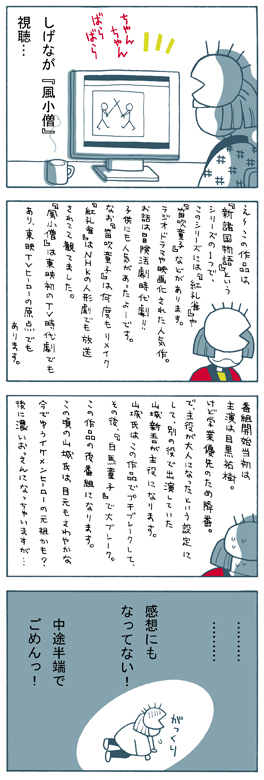 ちゃんちゃん
ばらばら
しげなが『風小僧』
視聴…
え〜この作品は
『新諸国物語』という
シリーズの1つで、
このシリーズには『紅孔雀』や
『笛吹童子』などがあります。
ラジオドラマや映画化された人気作。
お話は冒険活劇時代劇!!
子供にも人気があったよーです。
なお『笛吹童子』は何度もリメイク
『紅孔雀』はNHKの人形劇でも放送
されてて観てました。
『風小僧』は東映初のTV時代劇でも
あり、東映TVヒーローの原点でも
あります。
番組開始当初は
主演は目黒祐樹。
けど学業優先のため降番。
で主役が大人になったという設定に
して、別の役で出演していた
山城新吾が主役になります。
山城氏はこの作品でプチブレークして、
その後、『白馬童子』で大ブレーク。
この作品の後番組になります。
この頃の山城氏は目元もさわやかな
今でゆうイケメンヒーローの元祖かも?
後に濃いおっさんになっちゃいますが…
…………
…………
感想にも
なってない!
中途半端で
ごめんっ!
がっくり